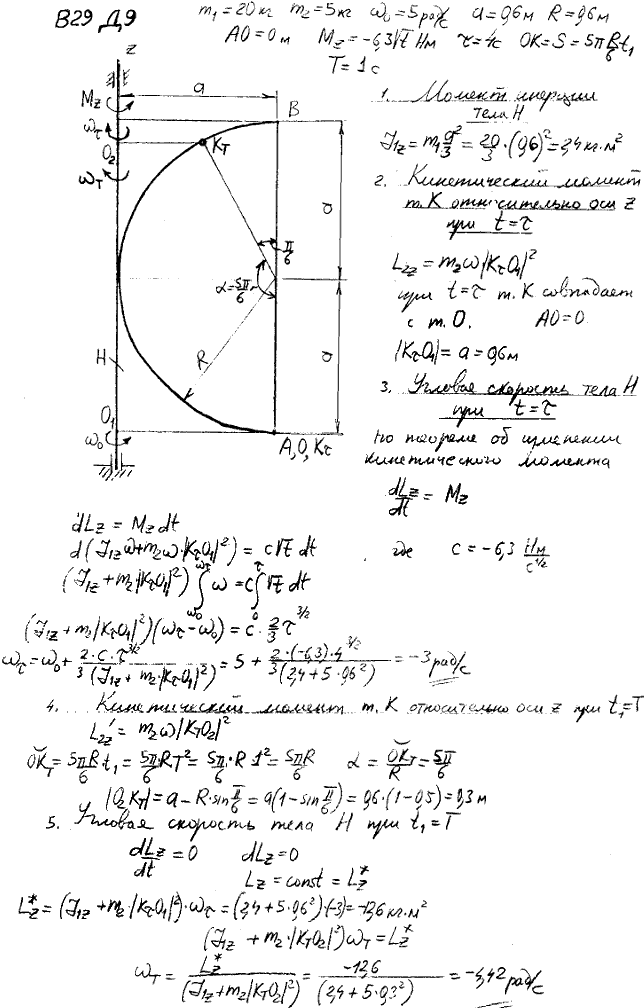 В29 Д9
m₁=20кг m₂=5кг ω₀=5рад/с a=0,6м R=0,6м
AO=0м M_z=-6,3√t Нм τ=4с OK=S=5πR/6 t₁
T=1с
z
a
M_z
B
ω_τ
O₂
K_T
ω_T
π/6
α=5π/6
a
R
a
H
O₁
ω₀
A,O,K_τ
1. Момент инерции
тела H
J₁z=m₁a²/3=20/3·(0,6)²=2,4кг·м²
2. Кинетический момент
т.K относительно оси z
при t=τ
L₂z=m₂ω|K_τO₁|²
при t=τ т.K совпадает
с т.O. AO=0
|K_τO₁|=a=0,6м
3. Угловая скорость тела H
при t=τ
по теореме об изменении
кинетического момента
dL_z/dt=M_z
dL_z=M_z dt
d(J₁zω+m₂ω·|K_τO₁|²)=c√t dt где c=-6,3 Нм/с^1/2
(J₁z+m₂|K_τO₁|²)∫_ω₀^ω_τ ω=c∫_0^τ √t dt
(J₁z+m₂|K_τO₁|²)(ω_τ-ω₀)=c·2/3 τ^3/2
ω_τ=ω₀+2·c·τ^3/2/3(J₁z+m₂·|K_τO₁|²)=5+2·(-6,3)·4^3/2/3(2,4+5·0,6²)=-3рад/с
4. Кинетический момент т.K относительно оси z при t₁=T
L₂z'=m₂ω|K_TO₂|²
OK_T=5πR/6·t₁=5π/6RT²=5π/6·R·1²=5πR/6 α=OK_T/R=5π/6
|O₂K_T|=a-R·sinπ/6=a(1-sinπ/6)=0,6·(1-0,5)=0,3м
5. Угловая скорость тела H при t₁=T
dL_z/dt=0 dL_z=0
L_z=const=L_z*
L_z*=(J₁z+m₂·|K_τO₁|²)·ω_τ=(2,4+5·0,6²)·(-3)=-12,6кг·м²
(J₁z+m₂·|K_TO₂|²)ω_T=L_z*
ω_T=L_z*/(J₁z+m₂|K_TO₂|²)=-12,6/(2,4+5·0,3²)=-4,42рад/с